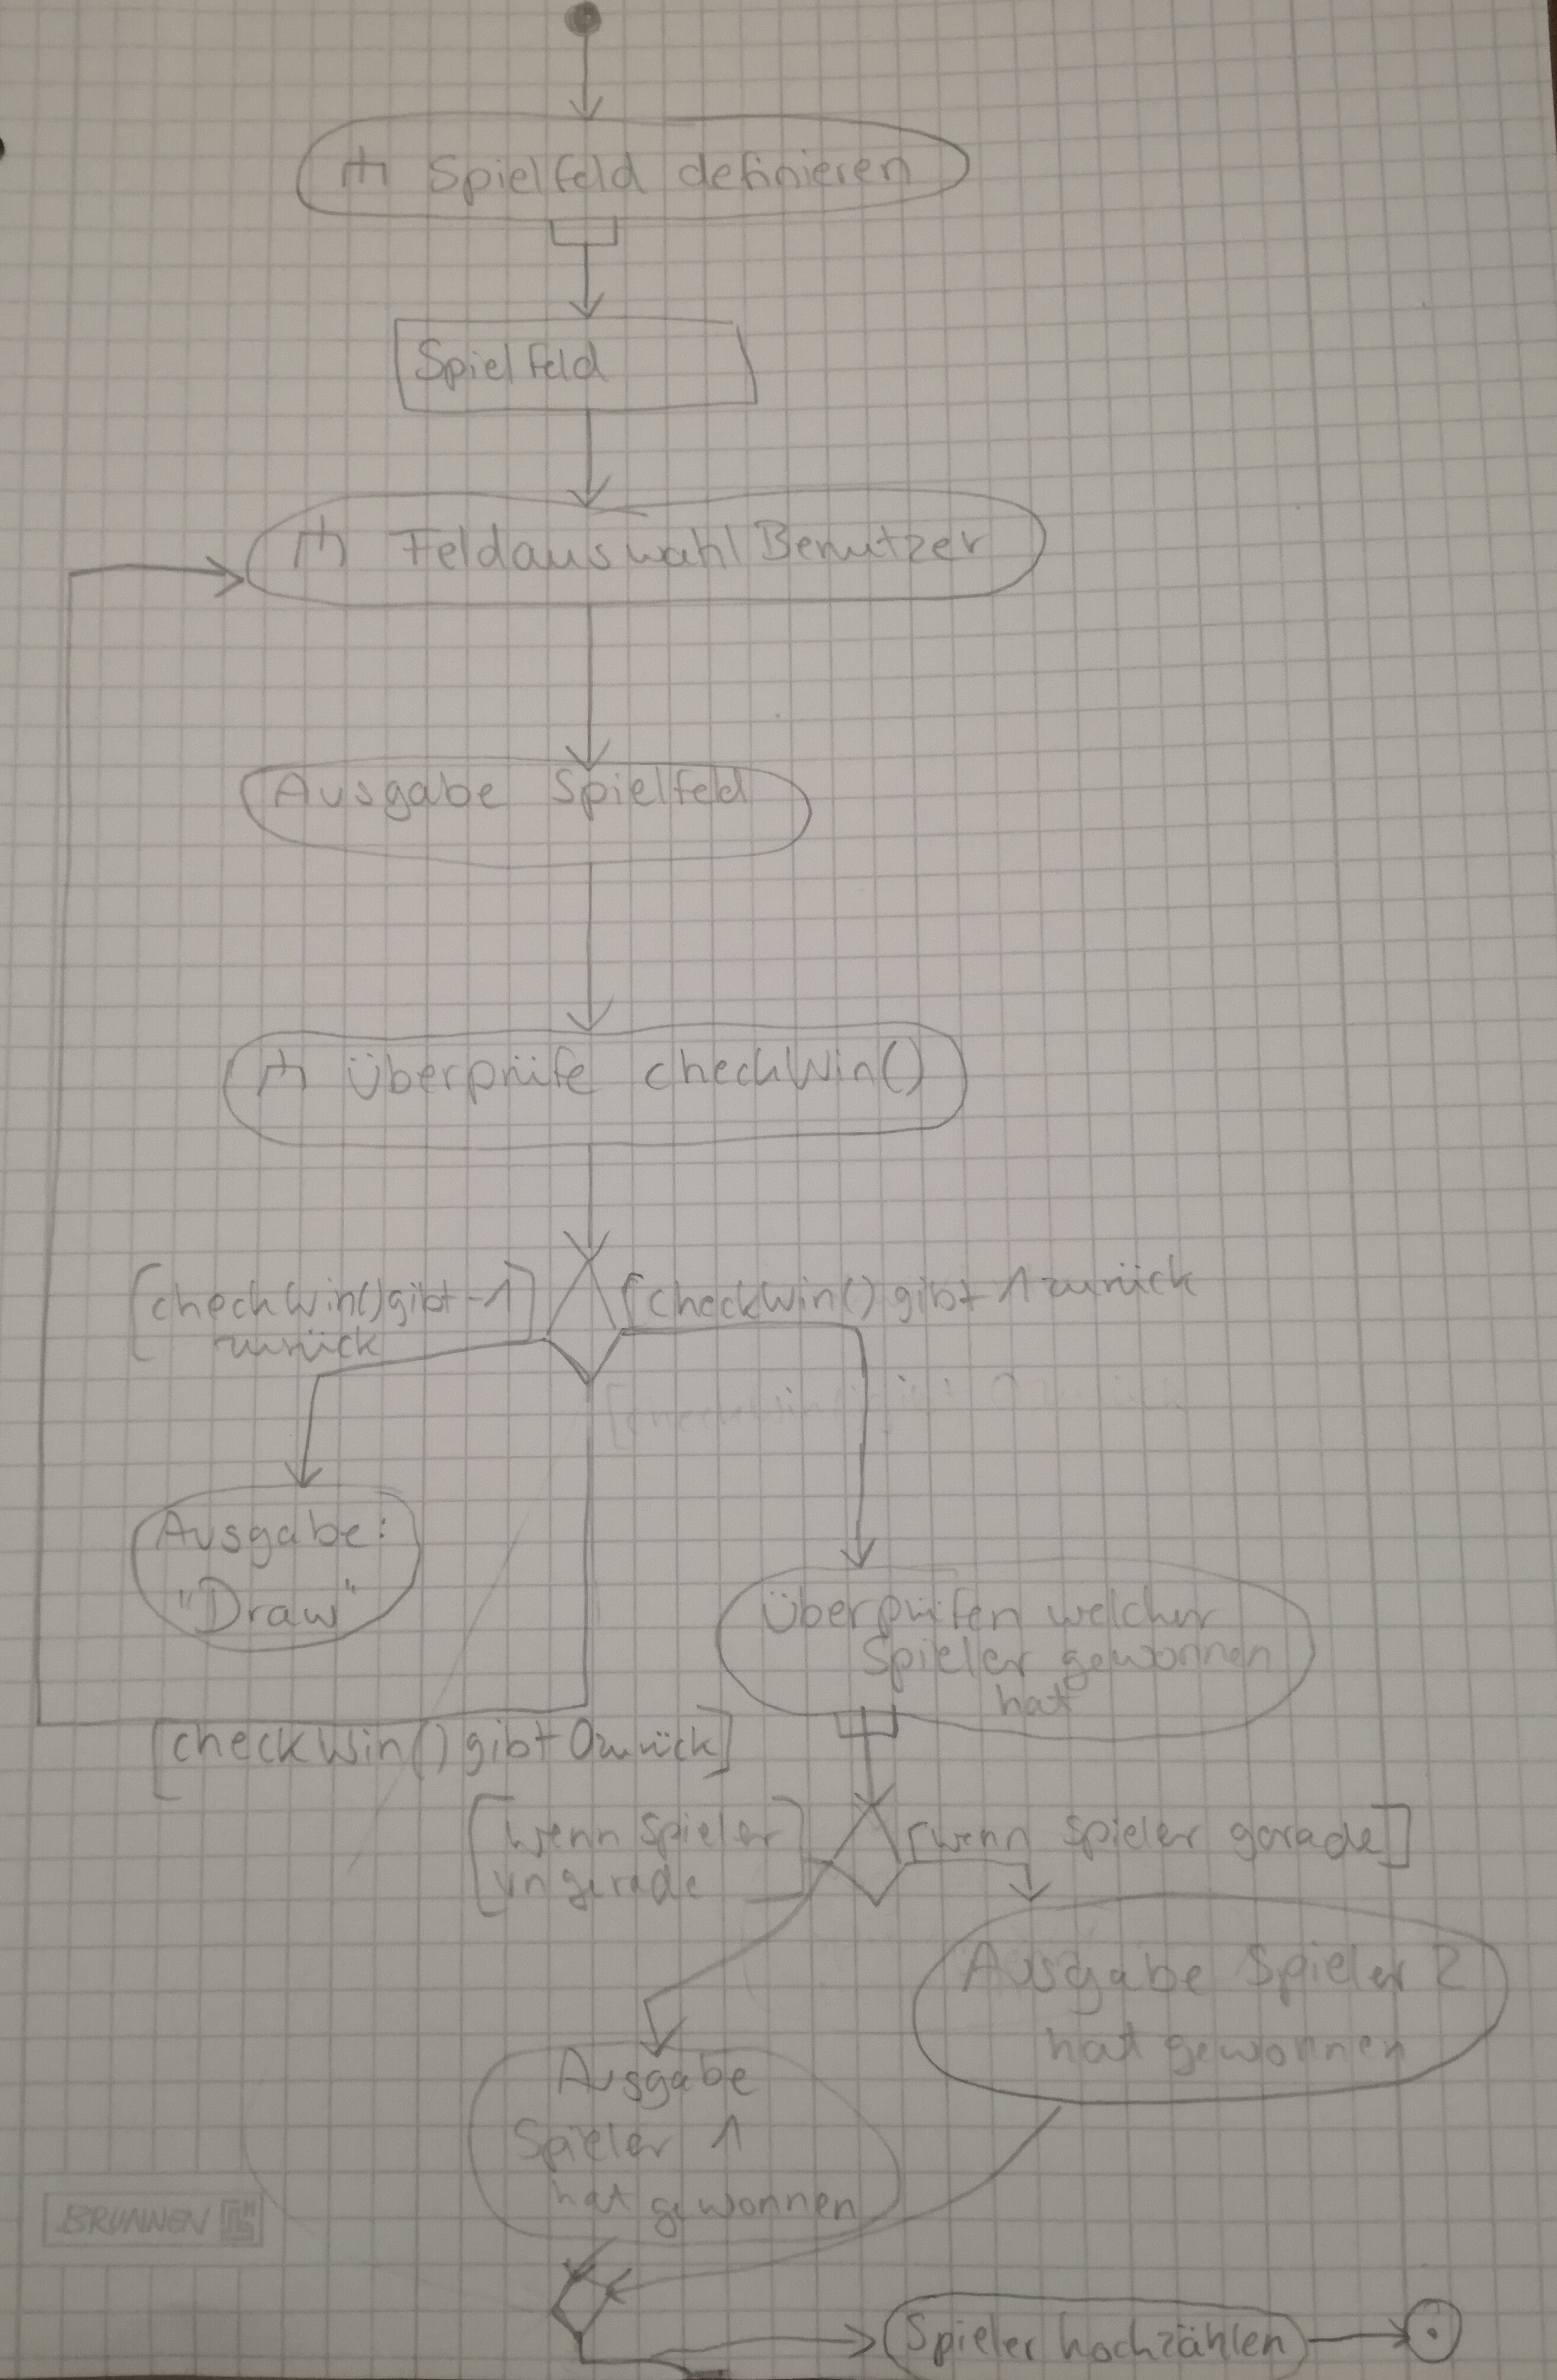 Spielfeld definieren
Spielfeld
Feldauswahl Benutzer
Ausgabe Spielfeld
überprüfe checkWin()
[checkWin() gibt -1]
zurück
[checkWin() gibt 1 zurück
Ausgabe:
"Draw"
Überprüfen welcher
Spieler gewonnen
hat
[checkWin() gibt 0 zurück]
[wenn Spieler]
ungerade
[wenn Spieler gerade]]
Ausgabe Spieler 2
hat gewonnen
Ausgabe
Spieler 1
hat gewonnen
BRUNNEN
Spieler hochzählen